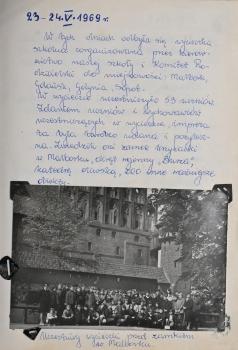 23-24.V.1969 r.
W tych dniach odbyła się wycieczka
szkolna zorganizowana przez kierow-
nictwo naszej szkoły i Komitet Ro-
dzicielski do miejscowości: Malbork,
Gdańsk, Gdynia, Sopot.
W wycieczce uczestniczyło 53 uczniów.
Zdaniem uczniów i wychowawców
uczestniczących w wycieczce, impreza
ta była bardzo udana i pożytecz-
na. Zwiedzili oni zamek krzyżacki
w Malborku, okręt wojenny „Burza”,
katedrę oliwską, ZOO inne
obiekty.
Uczestnicy wycieczki przed zamkiem
w Malborku.